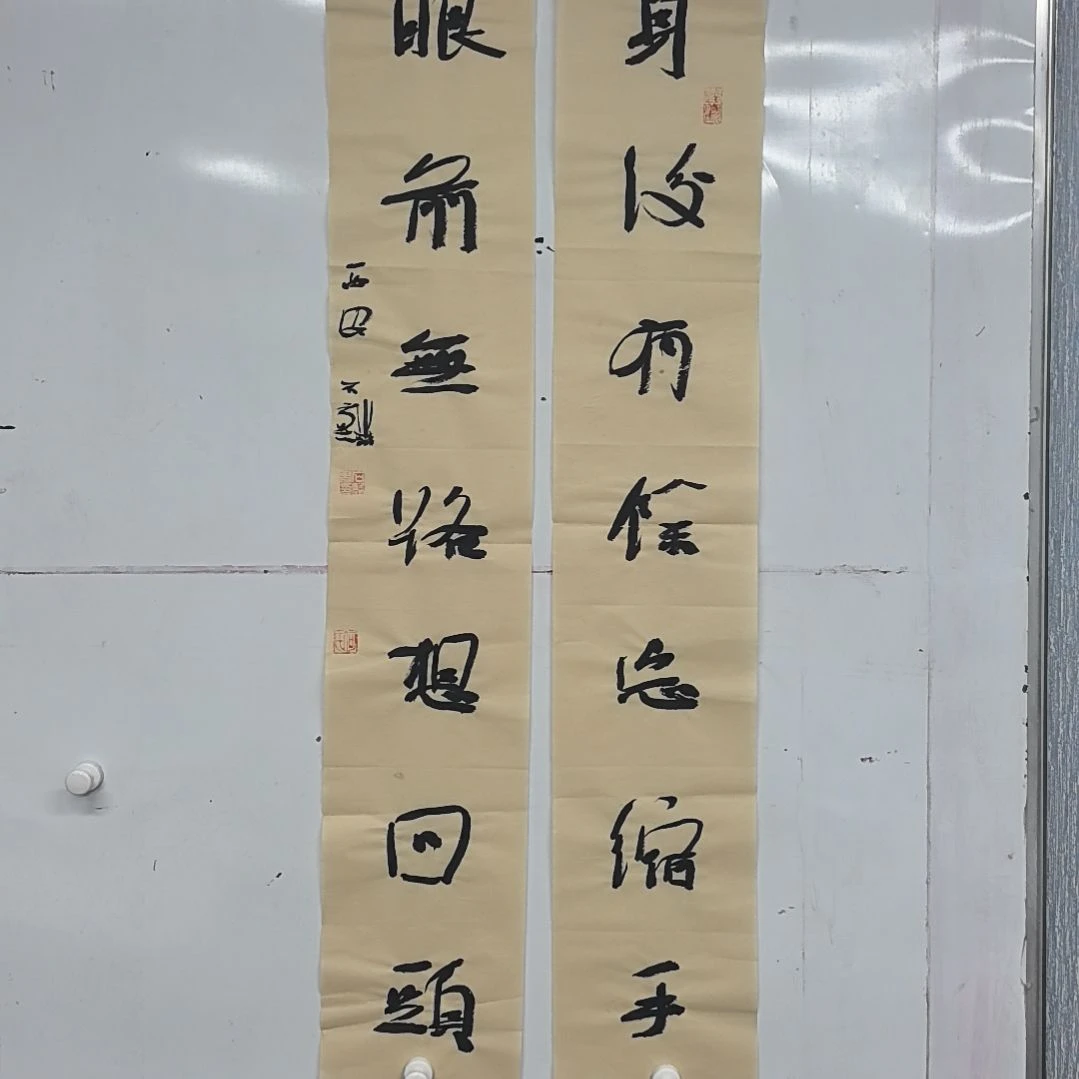 身後有餘忘縮手
眼前無路想回頭